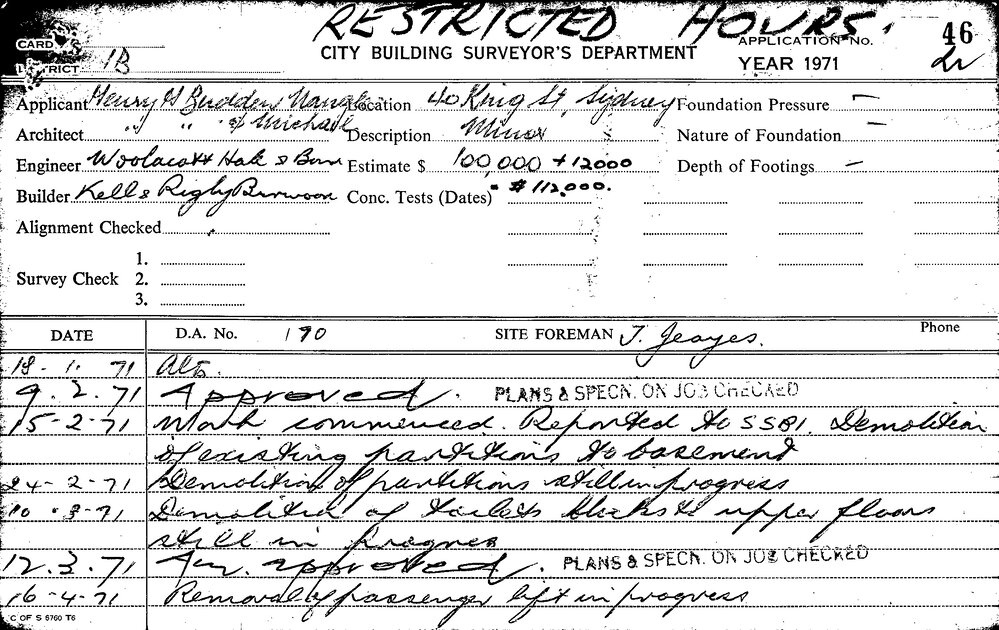 RESTRICTED HOURS.
CARD
CITY BUILDING SURVEYOR'S DEPARTMENT
APPLICATION No. 46
DISTRICT 1B
YEAR 1971
Applicant Henry Budden Nangle Location 40 King St, Sydney Foundation Pressure —
Architect " " & Michael Description Minor Nature of Foundation —
Engineer Woolacott Hale & Bon Estimate $ 100,000 + 12000 Depth of Footings —
Builder Kell & Rigby Burwood Conc. Tests (Dates) = $112,000.
Alignment Checked
1.
Survey Check 2.
3.
DATE D.A. No. 190 SITE FOREMAN J. Jeayes. Phone
18. 1. 71 Alts.
9. 2. 71 Approved. PLANS & SPECN. ON JOB CHECKED
15-2-71 Work commenced. Reported to SSBI. Demolition
of existing partitions to basement
24-2-71 Demolition of partitions still in progress
10.3-71 Demolition of toilets blocks to upper floors
still in progress
12.3.71 approved. PLANS & SPECN. ON JOB CHECKED
16-4-71 Removal of passenger lift in progress
C OF S 6760 T6